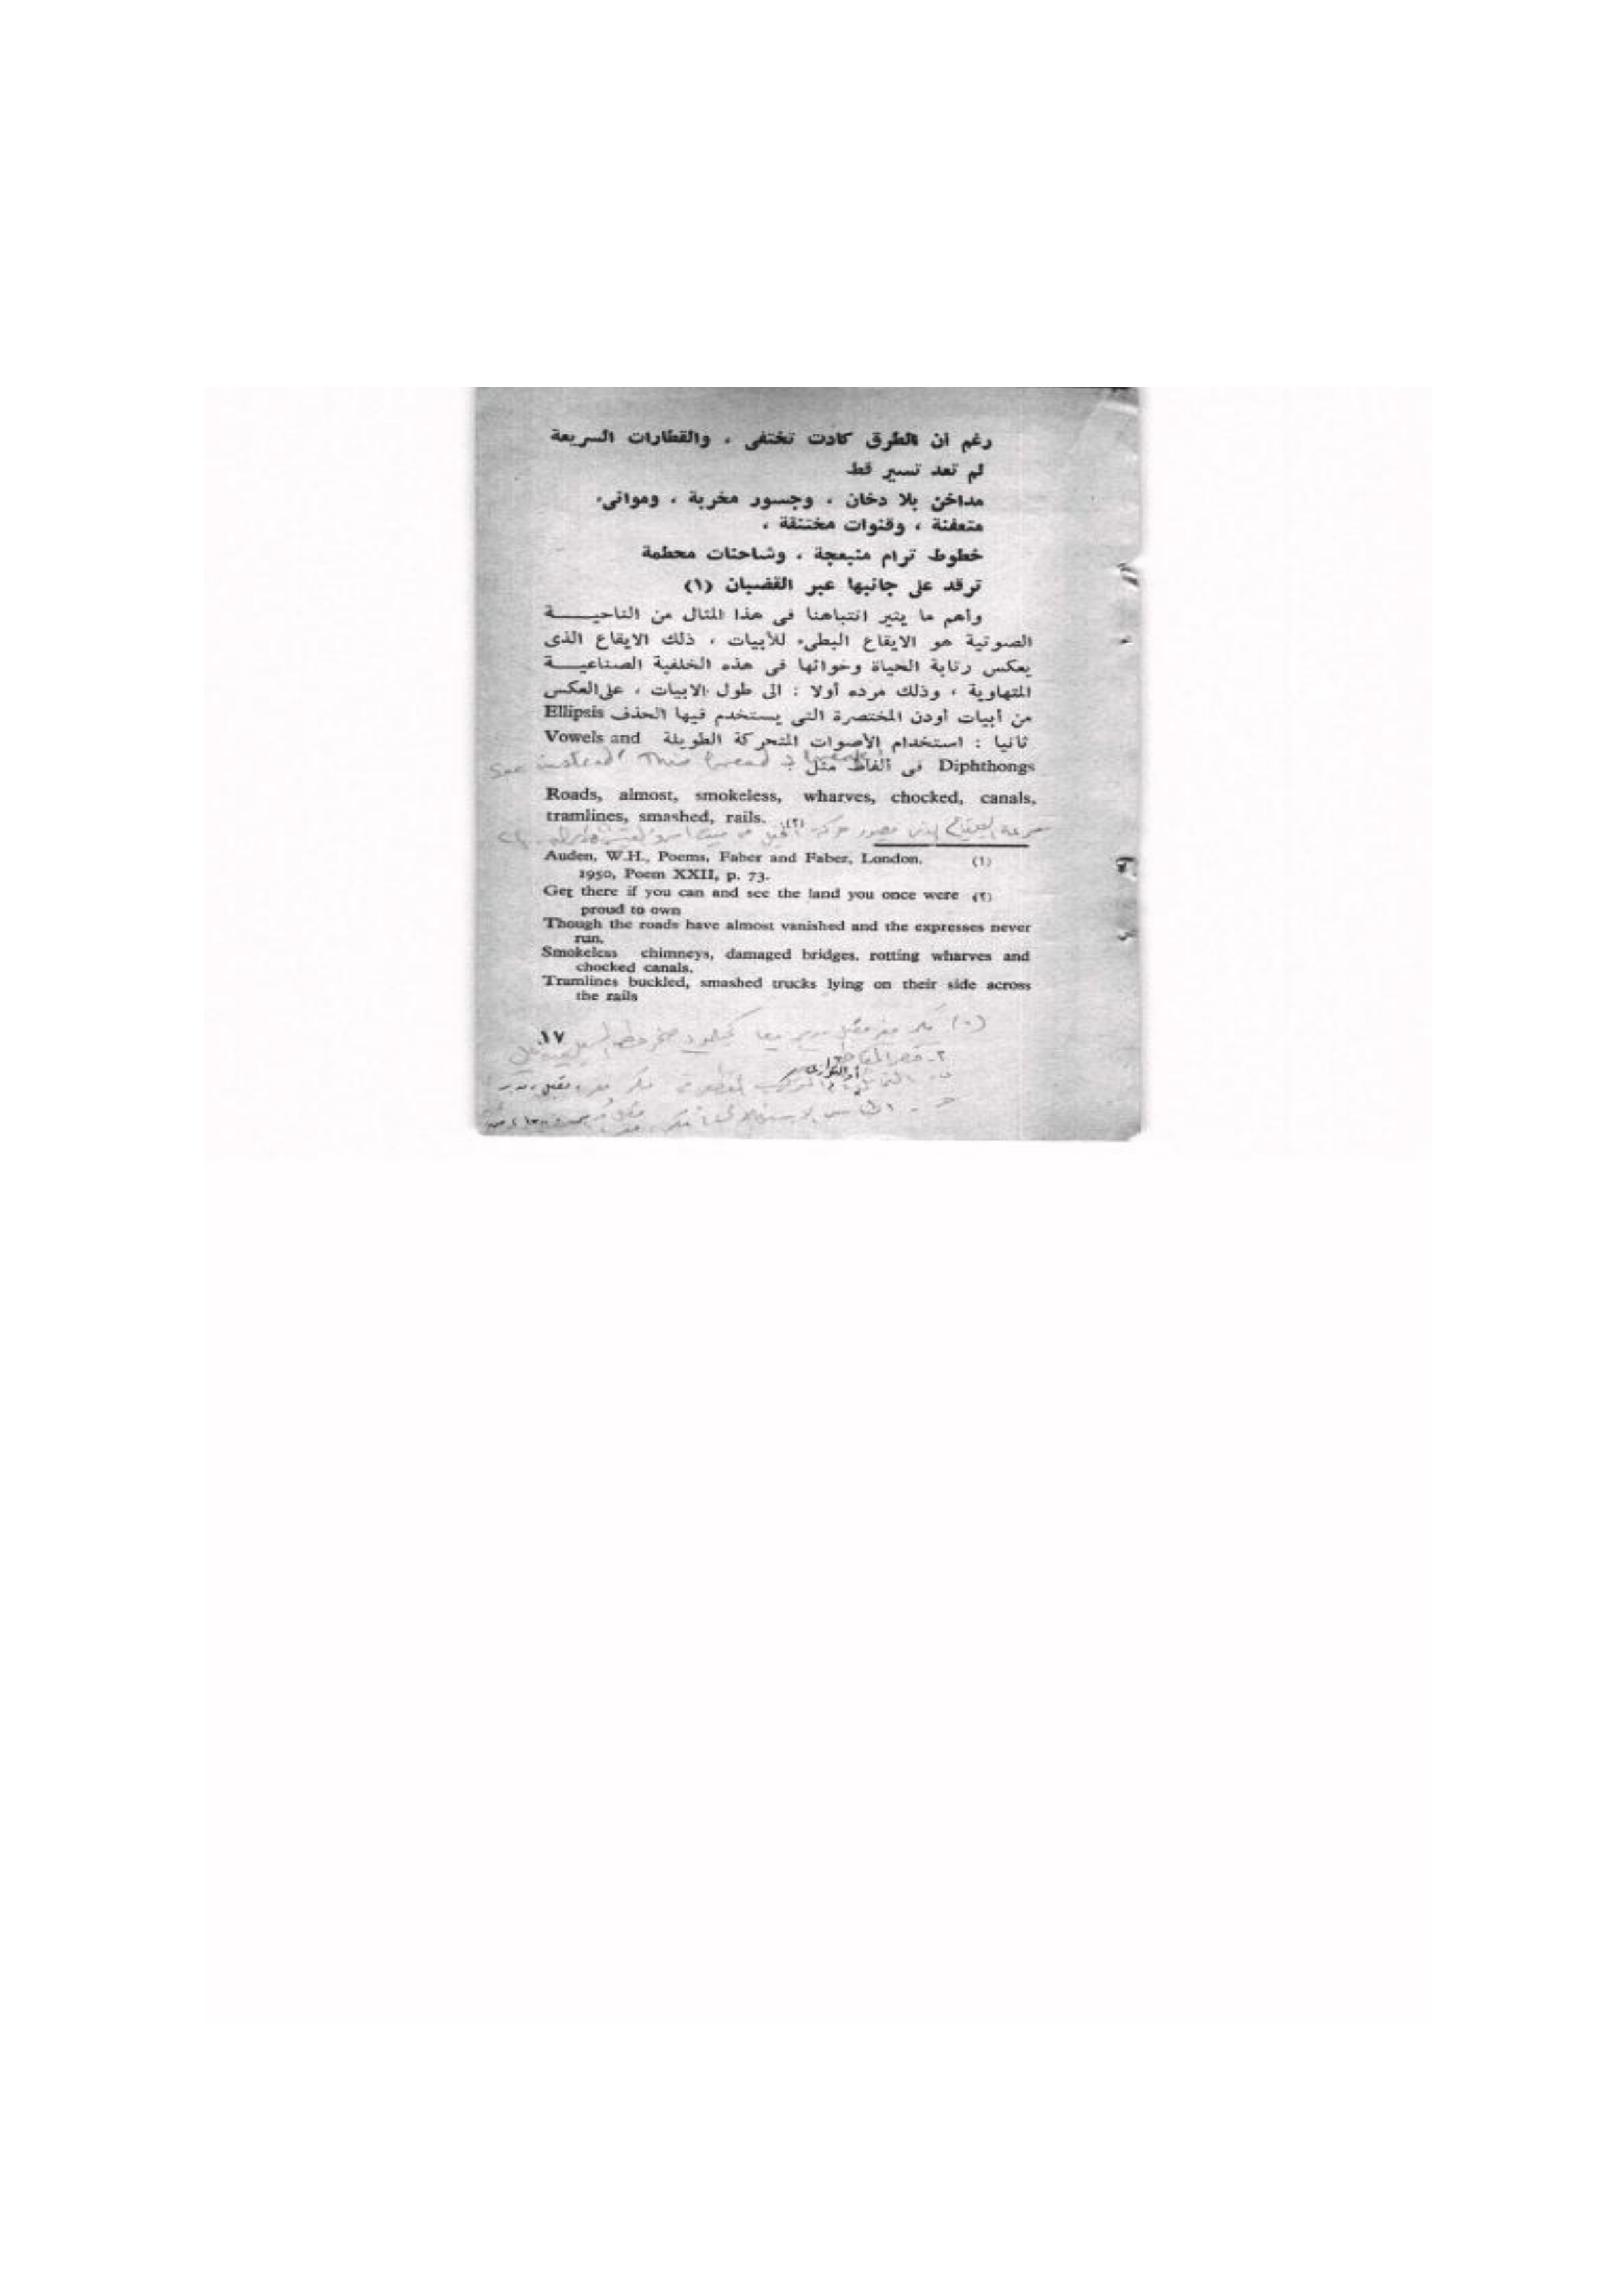 رغم أن الطرق كادت تختفى ، والقطارات السريعة
لم تعد تسير قط
مداخن بلا دخان ، وجسور مخربة ، وموانىء
متعفنة ، وقنوات مختنقة ،
خطوط ترام منبعجة ، وشاحنات محطمة
ترقد على جانبها عبر القضبان (١)
وأهم ما يثير انتباهنا فى هذا المثال من الناحيـــــة
الصوتية هو الايقاع البطىء للأبيات ، ذلك الايقاع الذى
يعكس رتابة الحياة وخوائها فى هذه الخلفية الصناعيـــة
المتهاوية ، وذلك مرده أولا : الى طول الابيات ، على العكس
من أبيات أودن المختصرة التى يستخدم فيها الحذف Ellipsis
ثانيا : استخدام الأصوات المتحركة الطويلة Vowels and
Diphthongs فى ألفاظ مثل :
See instead This bread I break
Roads, almost, smokeless, wharves, chocked, canals,
tramlines, smashed, rails. (٢)
Auden, W.H., Poems, Faber and Faber, London, (١)
1950, Poem XXII, p. 73.
Get there if you can and see the land you once were (٢)
proud to own
Though the roads have almost vanished and the expresses never
run.
Smokeless chimneys, damaged bridges, rotting wharves and
chocked canals.
Tramlines buckled, smashed trucks lying on their side across
the rails
مكر مفر مقبل مدبر معا كجلمود صخر حطه السيل من عل
١٧
٢ - قصر المقاطع
أو التوازى